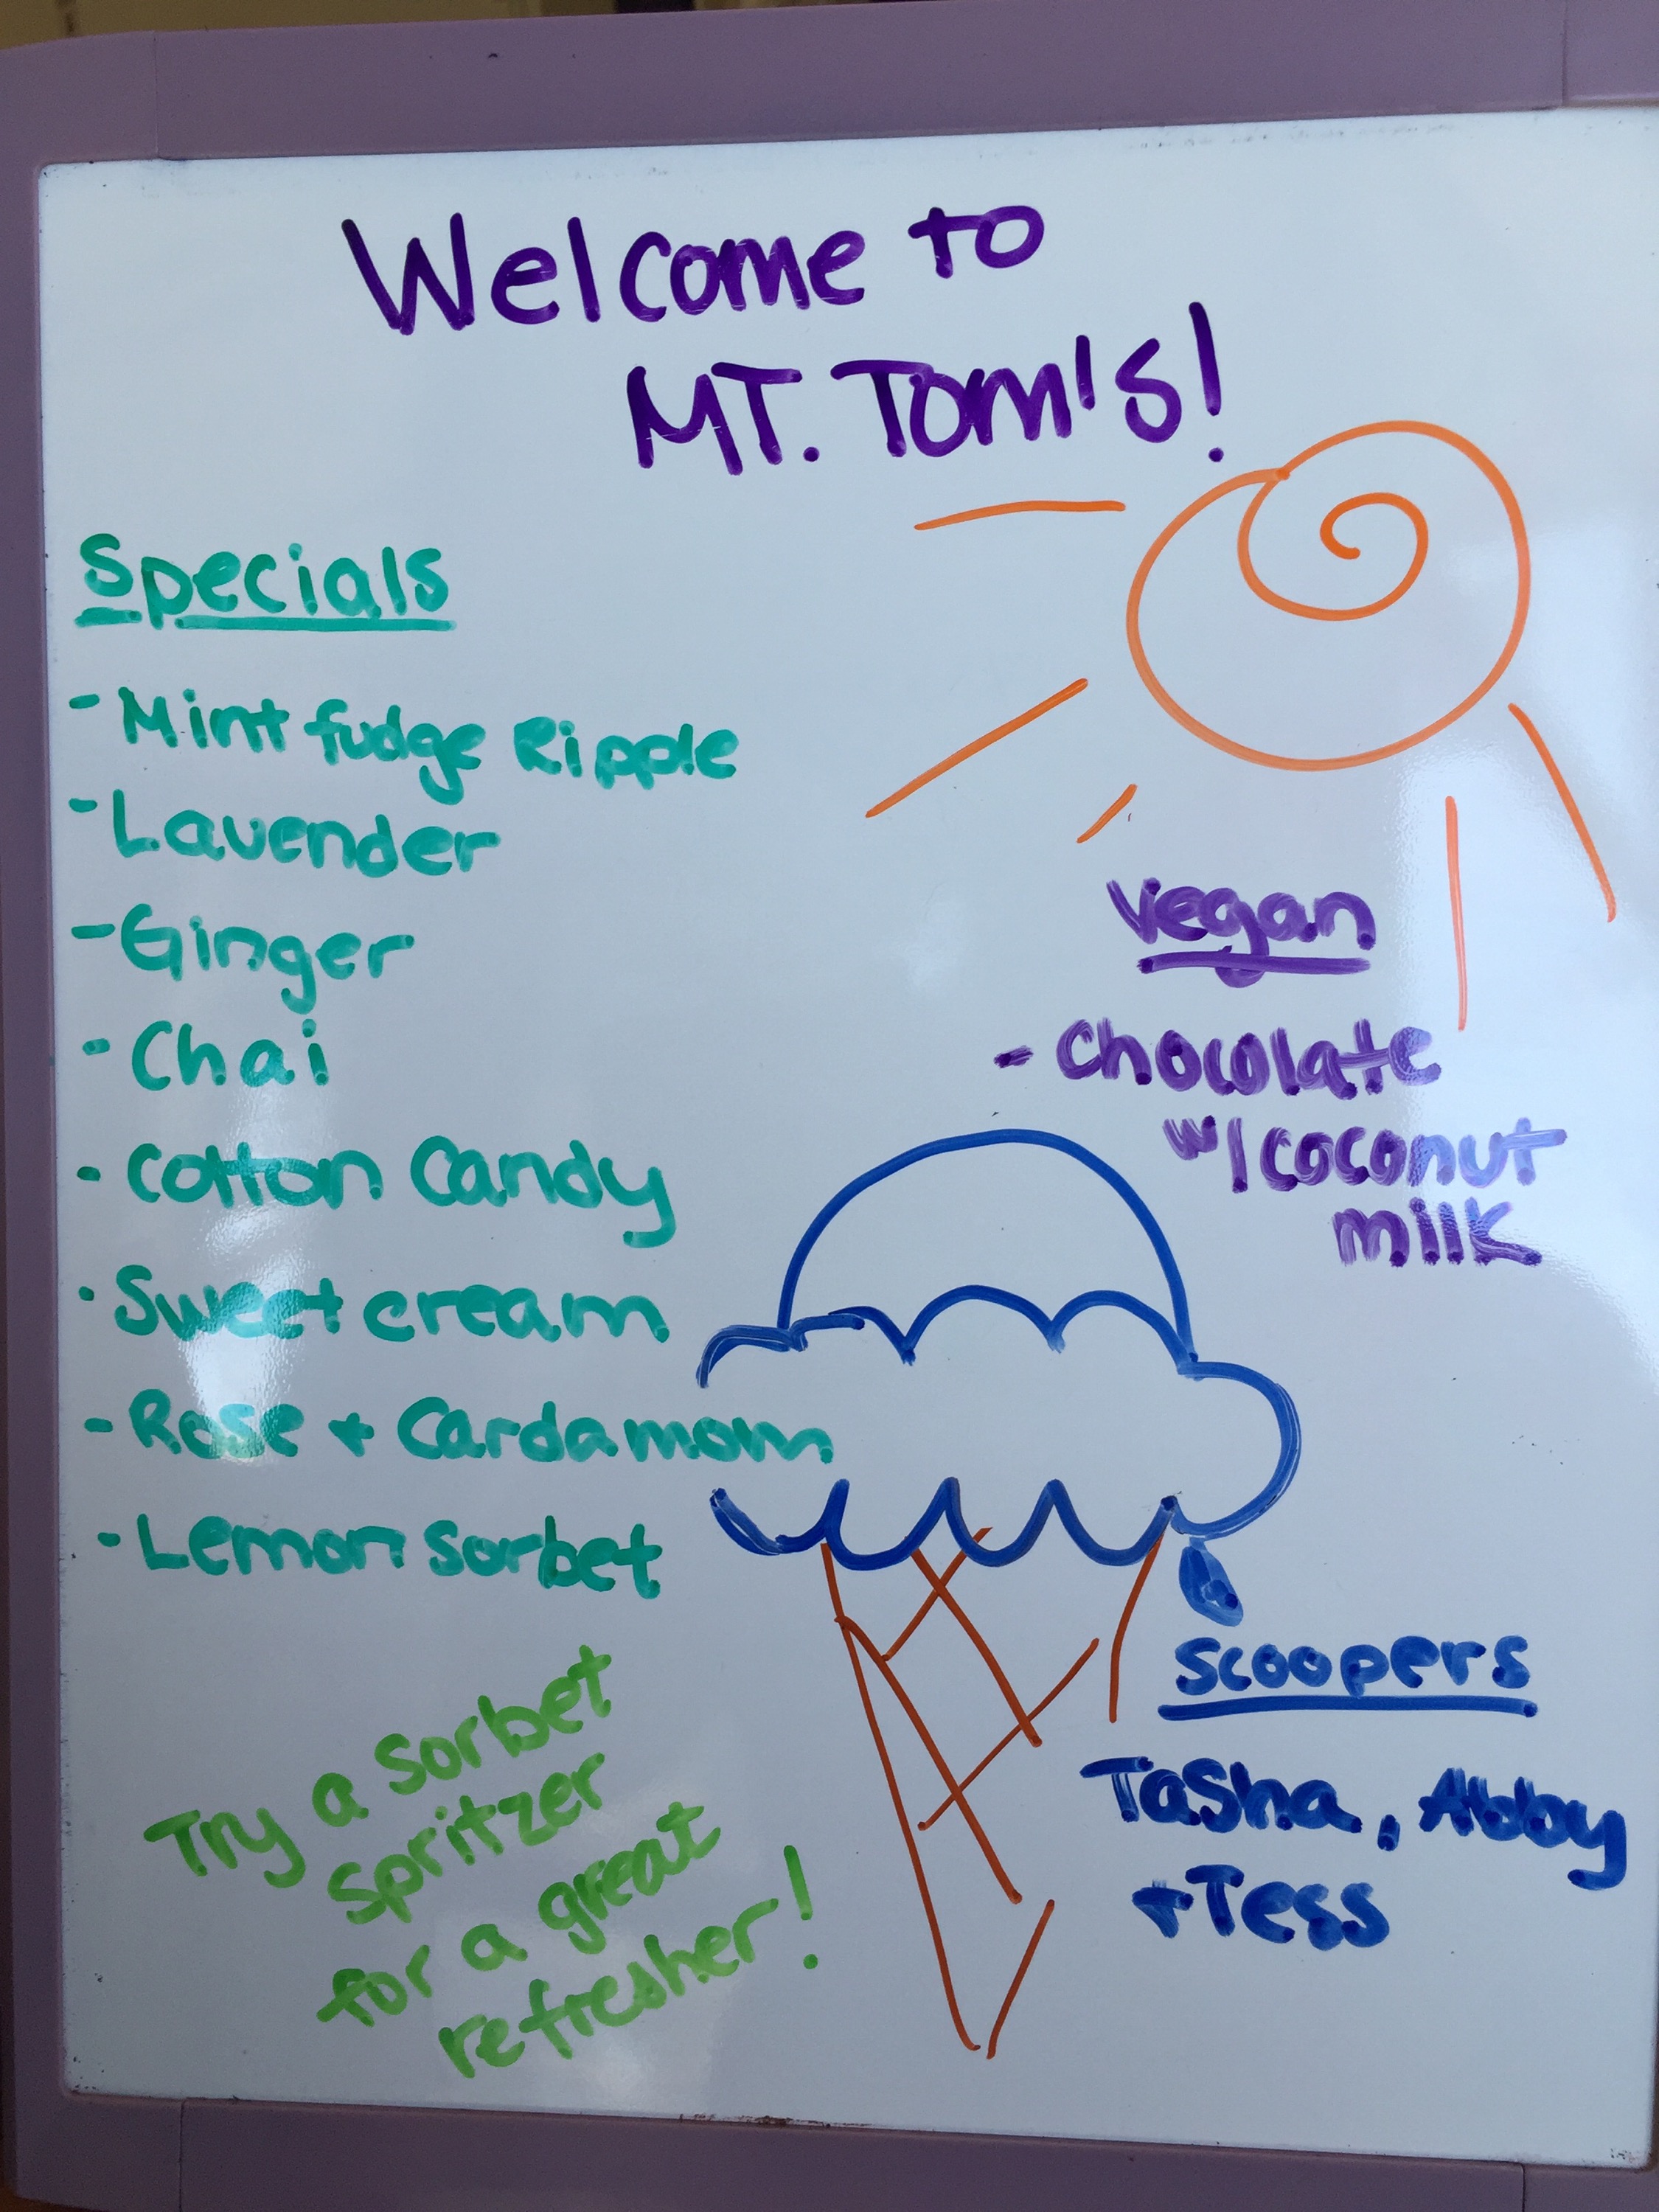 Welcome to
MT. Tom's!
Specials
- Mint fudge Ripple
- Lavender
- Ginger
- Chai
- Cotton Candy
- Sweet cream
- Rose + Cardamom
- Lemon Sorbet
Vegan
- Chocolate
w/ coconut
milk
Try a sorbet
spritzer
for a great
refresher!
Scoopers
Tasha, Abby
+ Tess